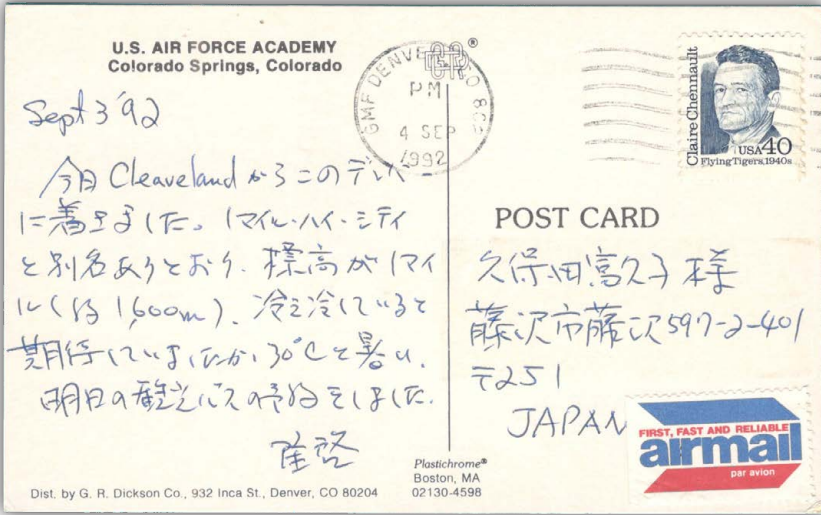 U.S. AIR FORCE ACADEMY
Colorado Springs, Colorado
Sept 3 '92
今日 Cleaveland からこのデンバー
に着きました。1マイル・ハイ・シティ
と別名ありとおり、標高が1マイ
ル(約1,600m)、冷え冷していると
期待していましたが、30℃と暑い、
明日の観光バスの予約をしました。
隆啓
Dist. by G. R. Dickson Co., 932 Inca St., Denver, CO 80204
Plastichrome®
Boston, MA
02130-4598
GMF DENVER CO 802
PM
4 SEP
1992
Claire Chennault
USA 40
Flying Tigers, 1940s
POST CARD
久保田富久子様
藤沢市藤沢597-2-401
〒251
JAPAN
FIRST, FAST AND RELIABLE
airmail
par avion